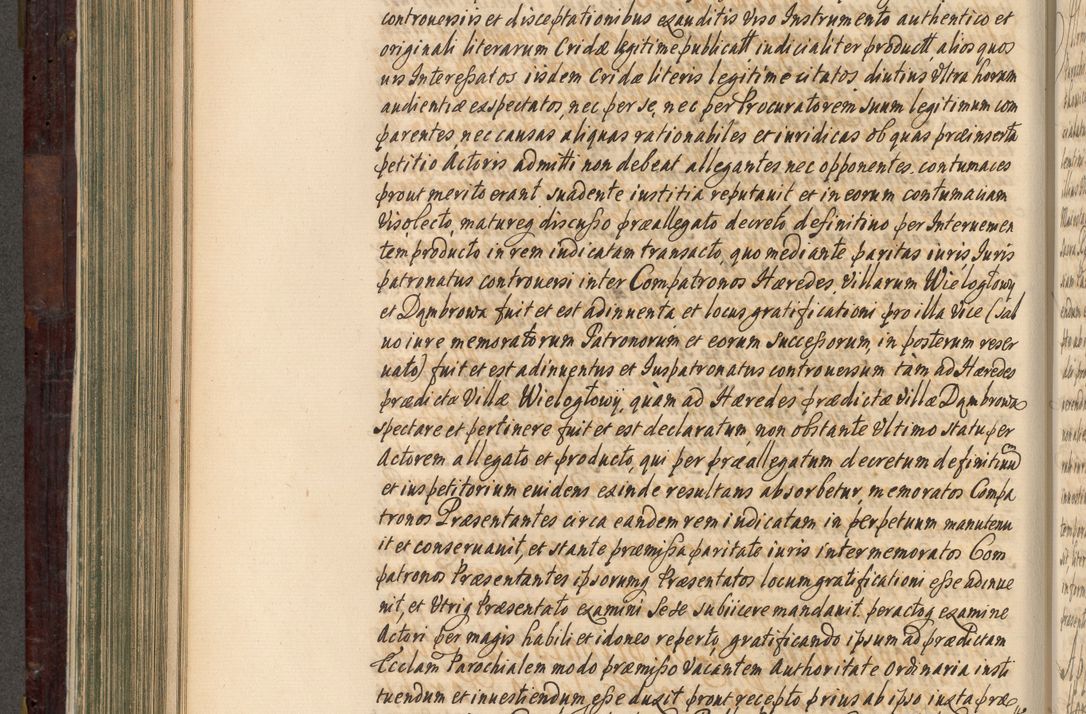 controuersiis et disceptationibus exauditis Viso Instrumento authentico et
originali literarum Cridæ legitime publicatt iudicialiter productt, alios quos
uis Interessatos iisdem Cridæ literis legitime citatos diutius Vltra horam
audientiæ exspectatos, nec per se, nec per Procuratorem suum legitimum com
parentes, nec causas aliquas rationabiles et iuridicas ob quas præinserta
petitio Actoris admitti non debeat allegantes nec opponentes contumaces
prout merito erant suadente iustitia reputauit et in eorum contumaciam
Viso lecto, matureq discusso præallegato decreto definitiuo per Interuenien
tem producto in rem iudicatam transacto, quo mediante paritas iuris Juris
patronatus controuersi inter Compatronos Hæredes Villarum Wielogłowy
et Dąmbrowa fuit et est adinuenta et locus gratificationi pro illa Vice (sal
uo iure memoratorum Patronorum et eorum Successorum, in posterum reser
uato) fuit et est adinuentus et Iuspatronatus controuersum tam ad Hæredes
prædictæ Villæ Wielogłowy, quam ad Hæredes prædictæ Villæ Dąmbrowa
spectare et pertinere fuit et est declaratum non obstante Vltimo statu per
Actorem allegato et producto, qui per præallegatum decretum definitiuu
et ius petitorium euidens exinde resultans absorbetur, memoratos Compa
tronos Præsentantes circa eandem rem iudicatam in perpetuum manutenu
it et conseruauit, et stante præmissa paritate iuris inter memoratos Com
patronos Præsentantes ipsorumq Præsentatos locum gratificationi esse adinue
nit, et Vtriq Præsentato examini sese subiicere mandauit. peractoq examine
Actori per magis habili et idoneo reperto, gratificando ipsum ad prædictam
Ecclam Parochialem modo præmisso Vacantem Authoritate Ordinaria insti
tuendum et inuestiendum esse duxit prout recepto prius ab ipso iuxta præ